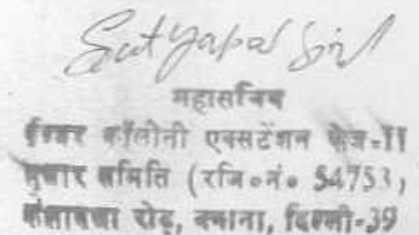 Satyapal Singh
महासचिव
ईश्वर कॉलोनी एक्सटेंशन फेज-II
सुधार समिति (रजि०नं० 54753)
रोड़, बवाना, दिल्ली-39